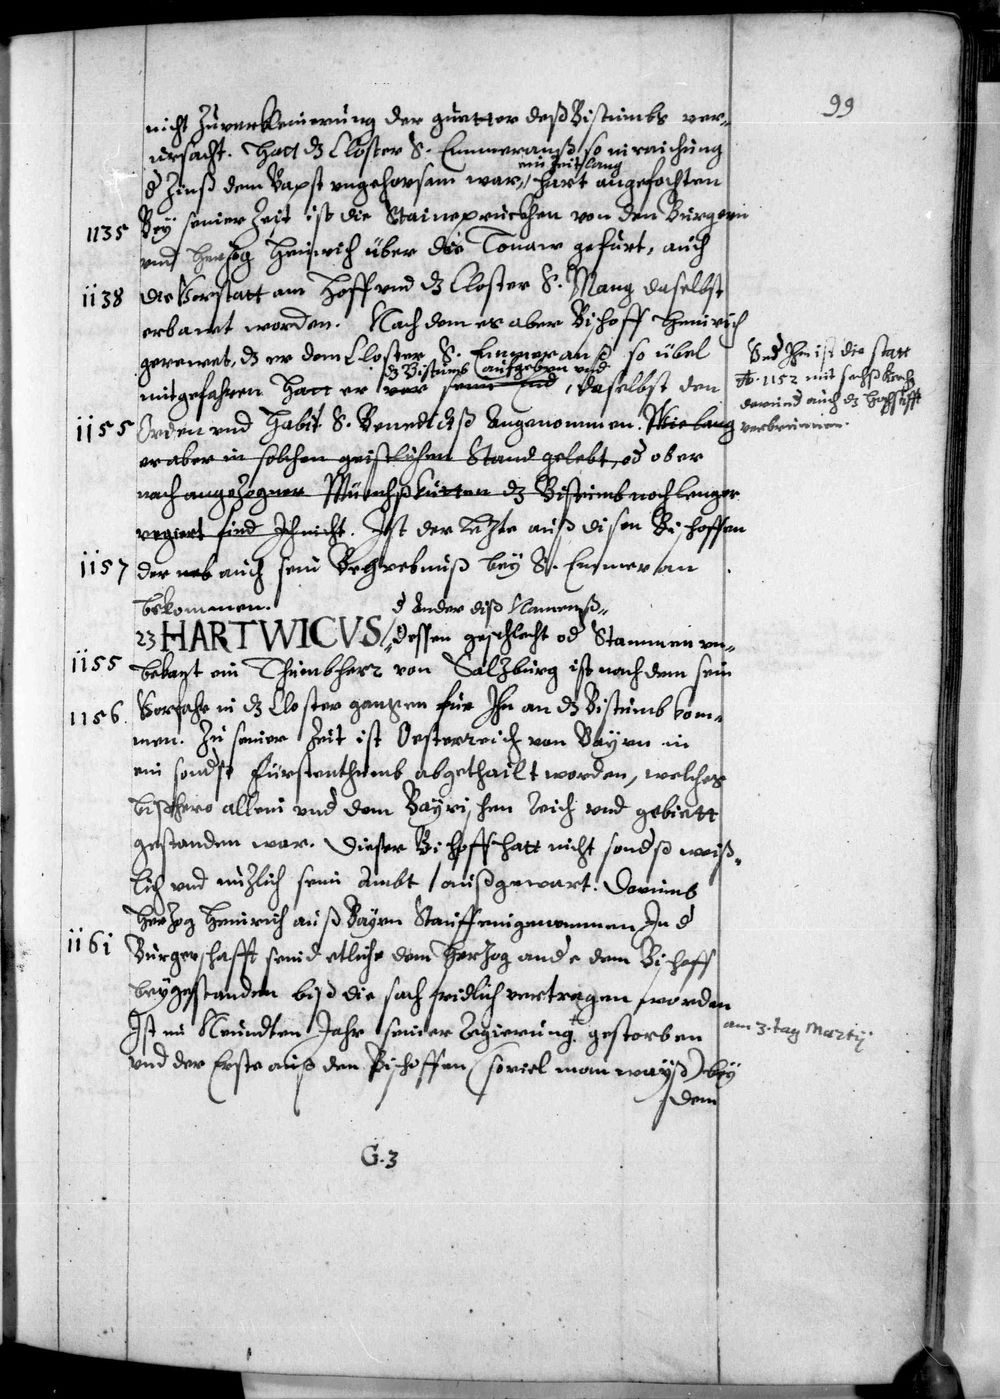 99
nicht zuverkleinerung der guetter deß Bistumbs ver-
ursacht. Hatt dz Closter S. Emmeranß so in raichung
d Zinß dem Bapst ungehorsam war, ein zeit lang hart angefochten
1135 Bey seiner Zeit ist die Staineprucken von den Burgern
und Herzog Heinrich über die Tonaw gefürt, auch
1138 die Vorstatt am Hoff und dz Closter S. Mang daselbst
erbawt worden. Nach dem es aber Bischoff Heinrich
gerewet, dz er dem Closter S. Emmeranß so übel
mitgefahren hatt er dz Bistumb aufgeben und daselbst den
Und Ihm ist die statt
Ao. 1152 mit sechß
darund auch dz
verbrunnen.
1155 Orden und Habit S. Benedictuß Angenommen. Wie lang
er aber in solchem geistlichem Stand gelebt, od ob er
nach angezogner Münchßkutten dz Bistumb noch lenger
regiert find Ich nicht. Ist der letzte auß disen Bischoffen
1157 der auch sein Begrebnuß bey S. Emmeran
bekommen.
d Ander diß Namenß
23 HARTWICVS, dessen geschlecht od Stammen un-
1155 bekant ein Thumbherr von Salzburg ist nach dem sein
1156. Vorfahr in dz Closter gangen für Ihn an dz Bistumb kom-
men. Zu seiner Zeit ist Oesterreich von Bayrn in
ein sondß fürstenthumb abgethailt worden, welches
bißhero allein und dem Bayrischen Reich und gebiett
gestanden war. Dieser Bischoff hatt nicht sondß weiß-
lich und nuzlich sein Ambt außgewart. Darumb
Herzog Heinrich auß Bayrn Stauff eingenommen In d
1161 Burgerschafft seind etliche dem Herzog ande dem Bischoff
beygestanden biß die sach fridlich vertragen worden
Ist im Neundten Jahr seiner Regierung gestorben
am 3. tag Martij
und der Erste auß den Bischoffen (soviel man wayß) bey
dem
G. 3